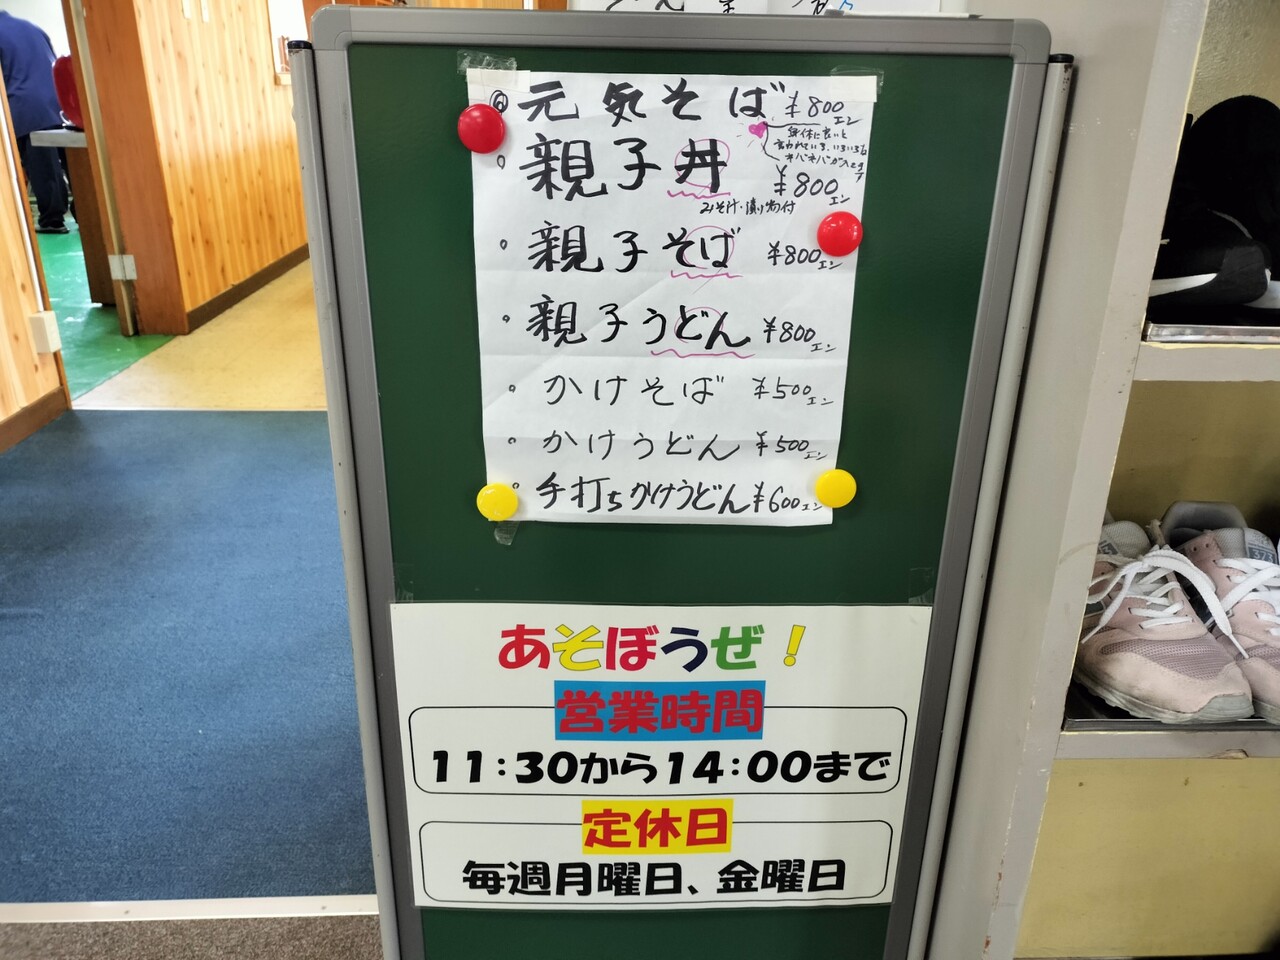 ◎元気そば ¥800エン
身体に良いと
言われている、いろいろな
ネバネバが入ってます
・親子丼 ¥800エン
みそ汁・漬け物付
・親子そば ¥800エン
・親子うどん ¥800エン
・かけそば ¥500エン
・かけうどん ¥500エン
・手打ちかけうどん ¥600エン
あそぼうぜ!
営業時間
11:30から14:00まで
定休日
毎週月曜日、金曜日
373